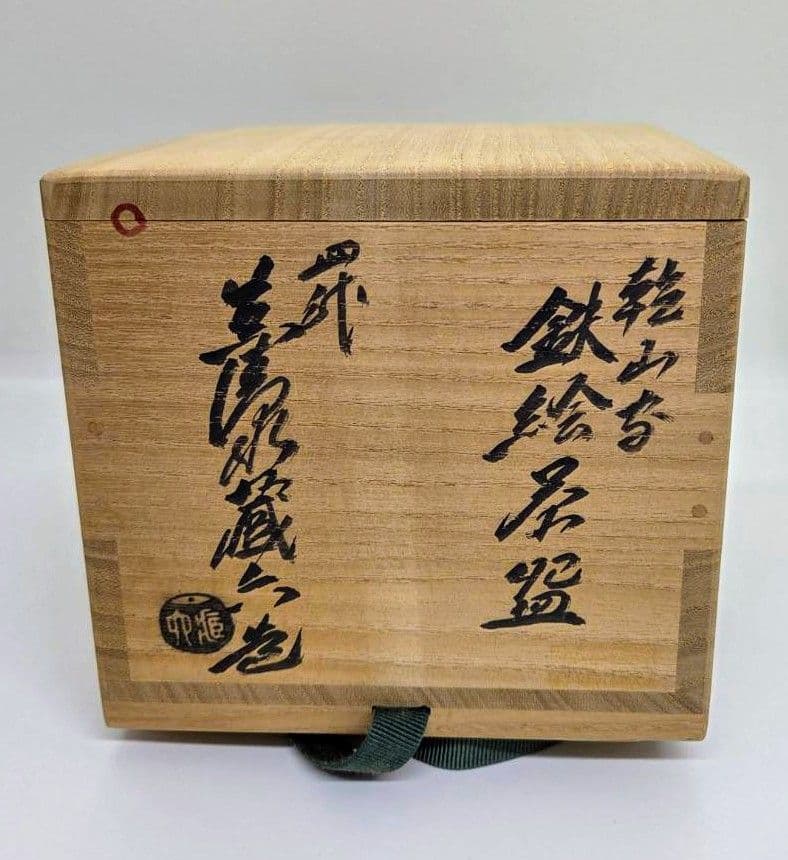 乾山写
鉄絵茶盌
四代
真清水蔵六造
蔵六